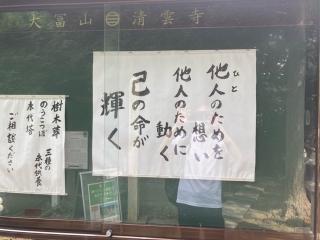 大冨山 清雲寺
他人のためを
ひと
想い
他人のために
動く
己の命が
輝く
樹木葬
のうこつぼ
永代塔
三種の
永代供養
ご相談ください